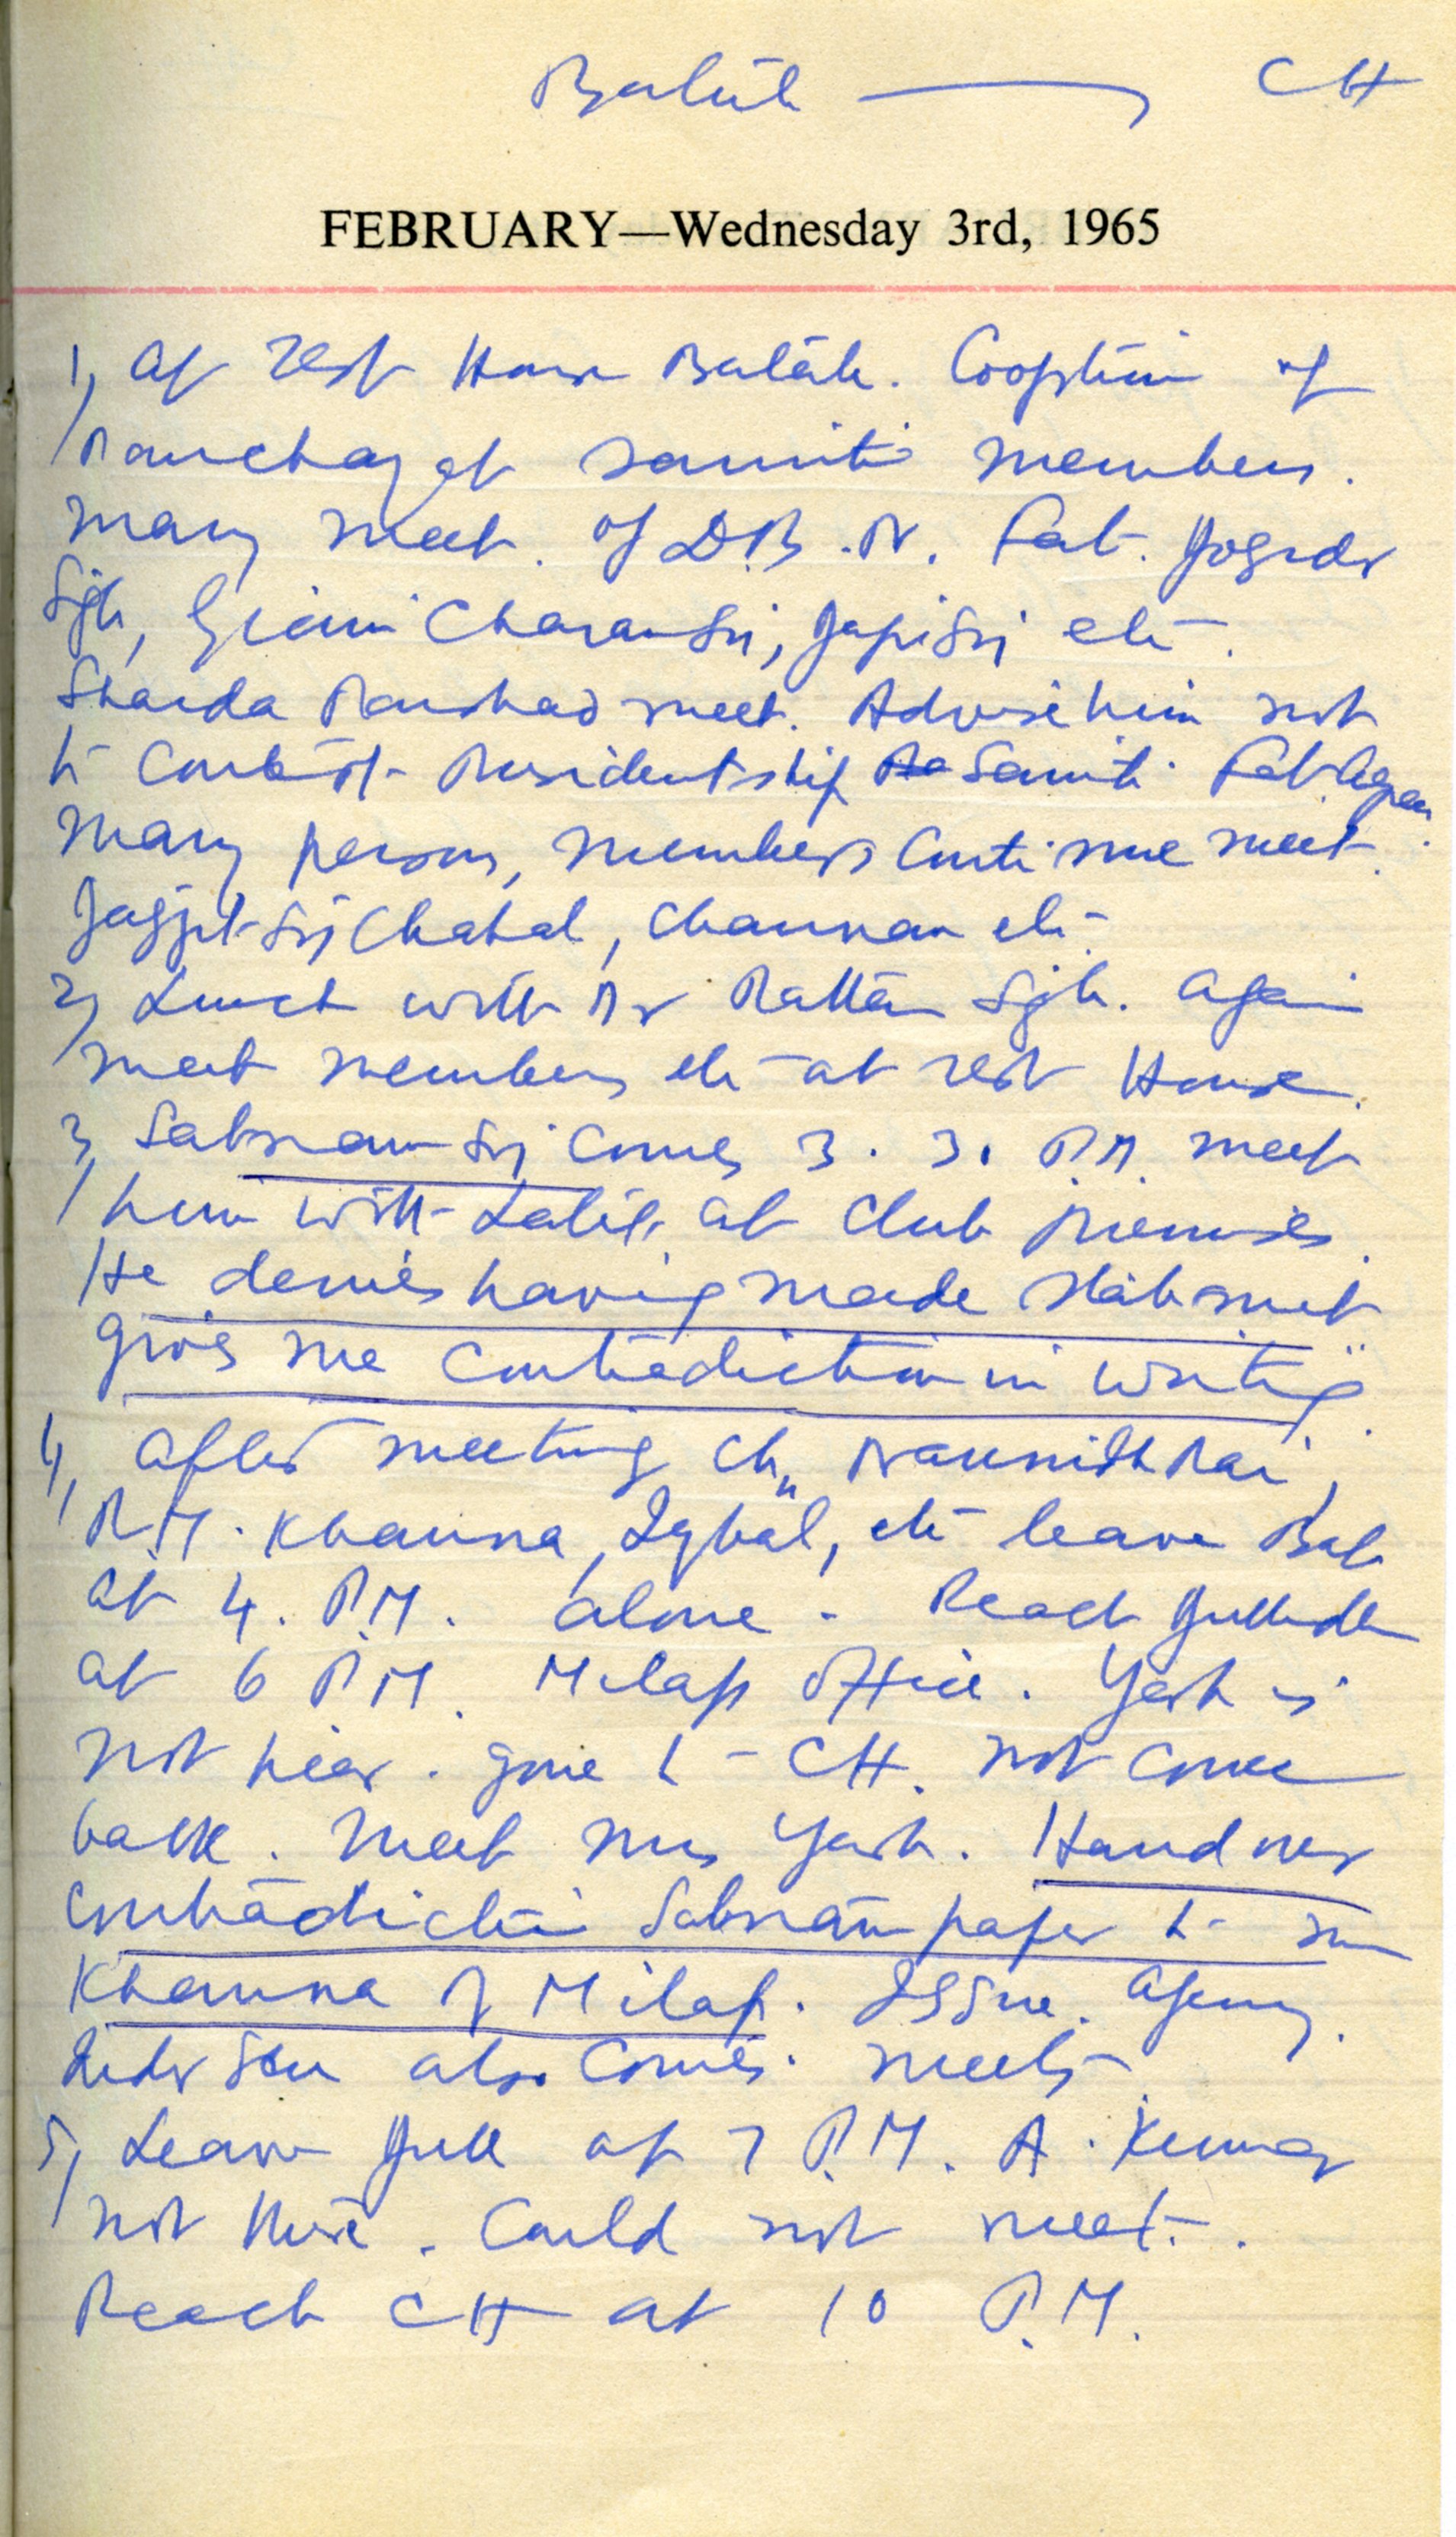 Batala — CH
FEBRUARY—Wednesday 3rd, 1965
1, At rest House Batala. Cooption of
Panchayat Samiti members.
Many meet. of D.B.N. Fat. Jogndr
Sgh, Giani Charan Sj, Japi Sj etc.
Sharda Parshad meet. Advise him not
to Contest Presidentship Samiti
Many persons, members Continue meet.
Jagjit Sj Chahal, Channan etc.
2, Lunch with Pr Rattan Sgh. Again
meet members etc at rest House.
3, Satnam Sj Comes 3.30 P.M. meet
him with Lalit at Club Premises.
He denies having made statement
gives me Contradiction in writing.
4, After meeting Ch. Naunidh Rai,
R.M. Khanna, Iqbal, etc leave Bat
at 4. P.M. alone. Reach Jullndr
at 6 P.M. Milap Office. Yash is
not hear. gone to CH. not Come
back. Meet Mrs Yash. Hand over
Contradiction Satnam paper to
Khanna of Milap. Issue. Agency
Indr also Comes. meets
5, Leave Jull at 7 P.M. A. Kumar
not there. Could not meet.
Reach CH at 10 P.M.